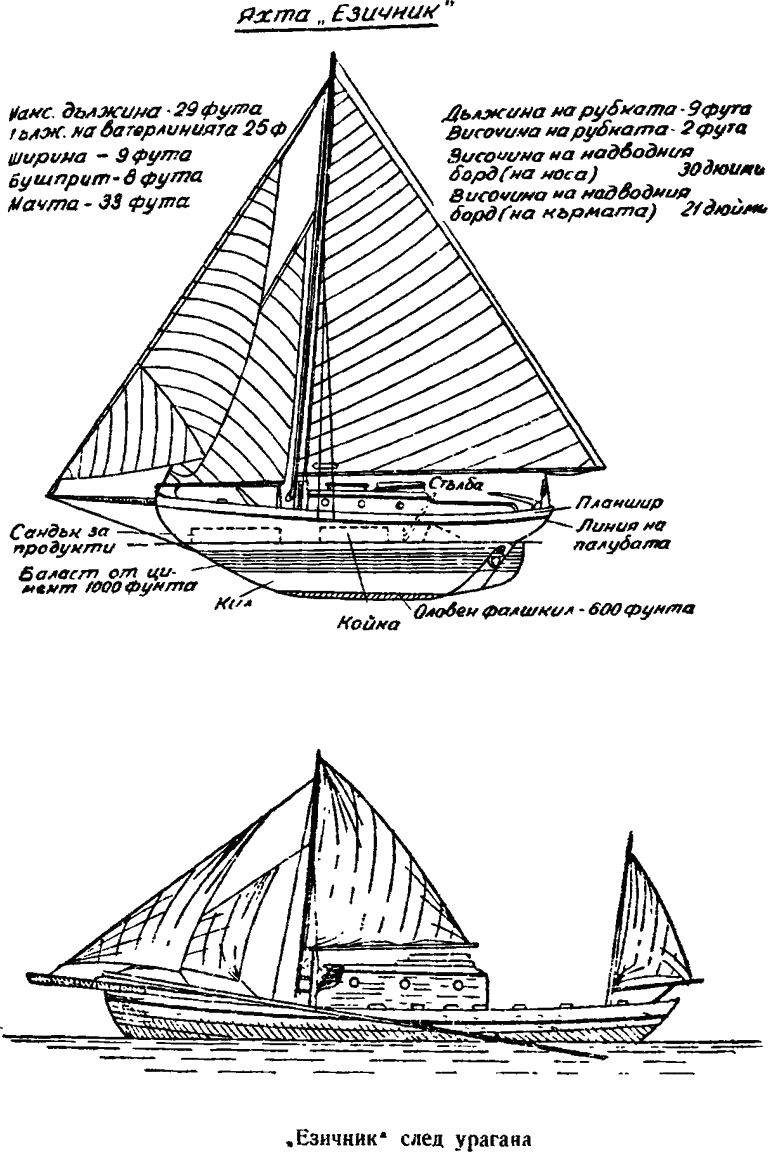 Яхта „Езичник"
Макс. дължина - 29 фута
дълж. на ватерлинията 25 ф
Ширина - 9 фута
Бушприт - 8 фута
Мачта - 33 фута
Дължина на рубката - 9 фута
Височина на рубката - 2 фута
Височина на надводния
борд (на носа) 30 дюйми
Височина на надводния
борд (на кърмата) 21 дюйми
Стълба
Планшир
Линия на
палубата
Сандък за
продукти
Баласт от ци-
мент 1000 фунта
Кил
Койка
Оловен фалшкил - 600 фунта
„Езичник“ след урагана